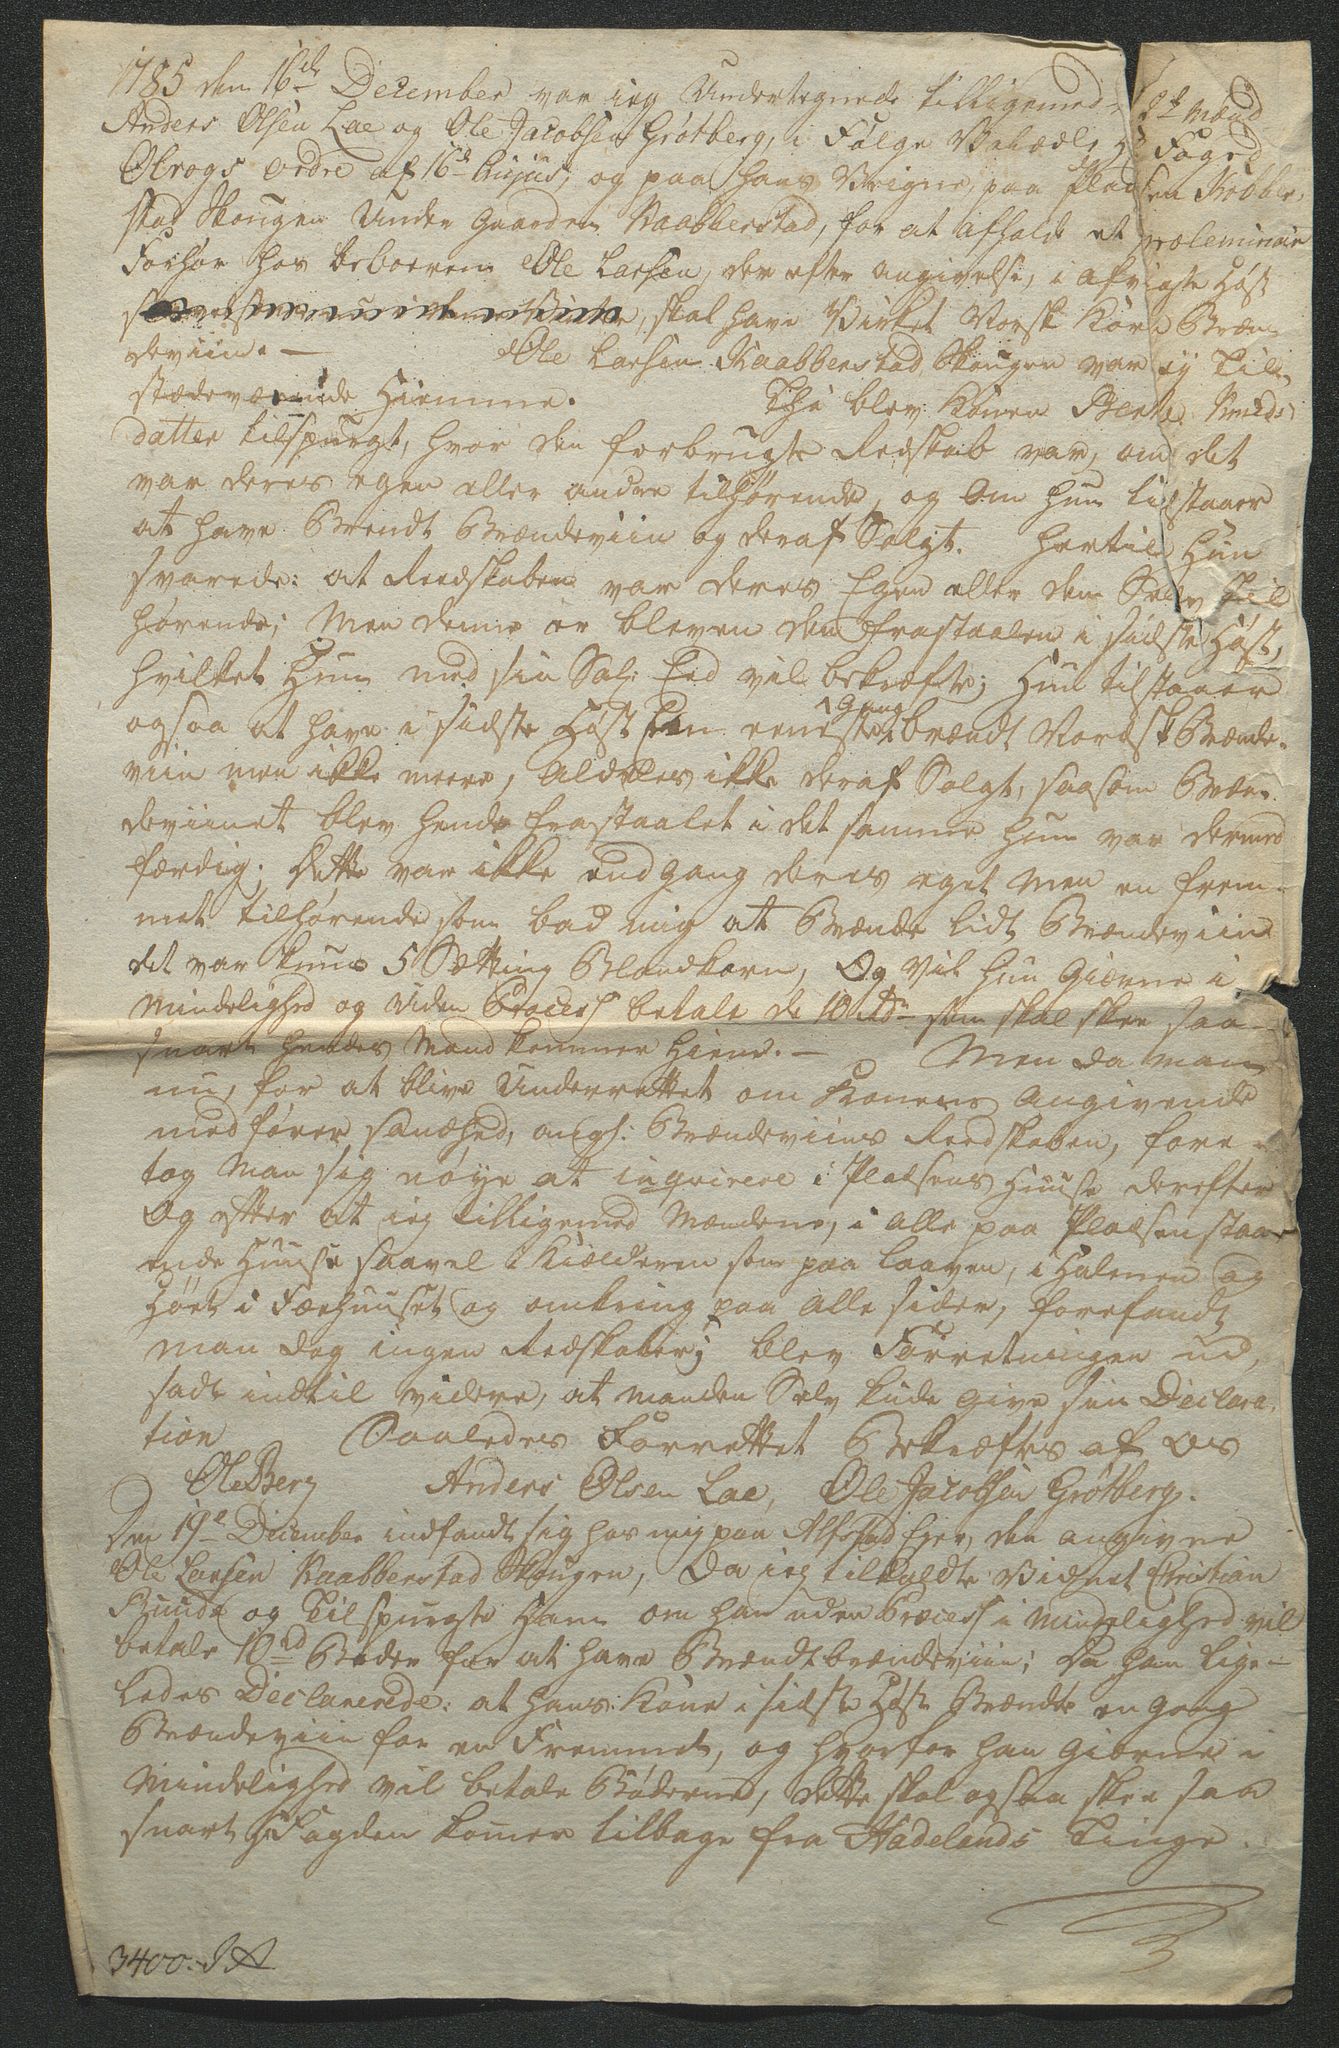 1785 den 16de December var jeg Undertegnede tilligemed 2de Mænd
Anders Olsen Lae og Ole Jacobsen Grøtberg, i Følge Velædle Hr Foged
Obrogs ordre af 16de hujus, og paa hans Vegne, paa Pladsen Kobber-
stad Skougen Under Gaarden Kaabberstad, for at afholde et præleminair
Forhør hos beboeren Ole Larsen, der efter angivelse, i afvigte Høst
skal have Virket Norsk Korn Bræn-
deviin. — Ole Larsen Kaabberstad Skougen var ej Till-
stædeværende Hiemme. Thi blev Konen Berte Knuds-
datter tilspurgt, hvor den forbrugte Redskab var, om det
var deres egen eller andre tilhørende, og Om hun tilstaaer
at have Brendt Brændeviin og deraf Solgt. Hertil Hun
svarede: at Reedskaben var deres Egen eller dem Selv till
hørende; Men denne er bleven dem frastaalen i sidste Høst,
hvilket Hun med sin Sal: Eed vil bekræfte; Hun tilstaaer
ogsaa at have i sidste Høst Een eeneste Gang brændt Nordsk Brænde-
viin men ikke meere, Aldeles ikke deraf Solgt, saasom Bræn-
deviinet blev hende frastaalet i det samme hun var dermed
færdig; Dette var ikke endgang deres eget Men en frem-
met tilhørende som bad mig at Brænde lidt Brændeviin
det var kuns 5 Sætting Blandkorn, Og vil hun Gierne i
Mindelighed og uden Process betale de 10 Rdr som skal skee saa-
snart hendes Mand kommer Hiem. — Men da man
nu, for at blive Underrettet om Konens Angivende
medfører sandhed, angl: Brændeviins Reedskaben, fore-
tog Man sig nøye at inqvirere i Pladsens Huuse derefter
Og efter at jeg tilligemed Mændene, i alle paa Pladsen staa-
ende Huuse saavel i Kielderen som paa Laaven, i Halmen og
Høet i Fæehuuset og omkring paa alle sider, forefandt
man dog ingen Redskaber; blev Forretningen ud-
sadt indtil videre, at manden Selv kude give sin Declara-
tion Saaledes Forrettet Bekræftes af Os
Ole Berg Anders Olsen Lae, Ole Jacobsen Grøtberg.
Den 19de December indfandt sig hos mig paa Alfstad Eyer, den angivne
Ole Larsen Kaabberstad Skougen, Da jeg tilkaldte Vidnet Christian
Buude og Tilspurgte Ham om han uden Process i Mindelighed vil
betale 10 rd Bøder for at have Brændt brændeviin; Da han lige-
ledes Declarerede: at hans Kone i sidste Høst Brændte en gang
Brændeviin for en Fremmet, og hvorfor han Gierne i
Mindelighed vil betale Bøderne, dette skal ogsaa skee saa
snart Hr Fogden komer tilbage fra Hadelands Tinge.
3400.